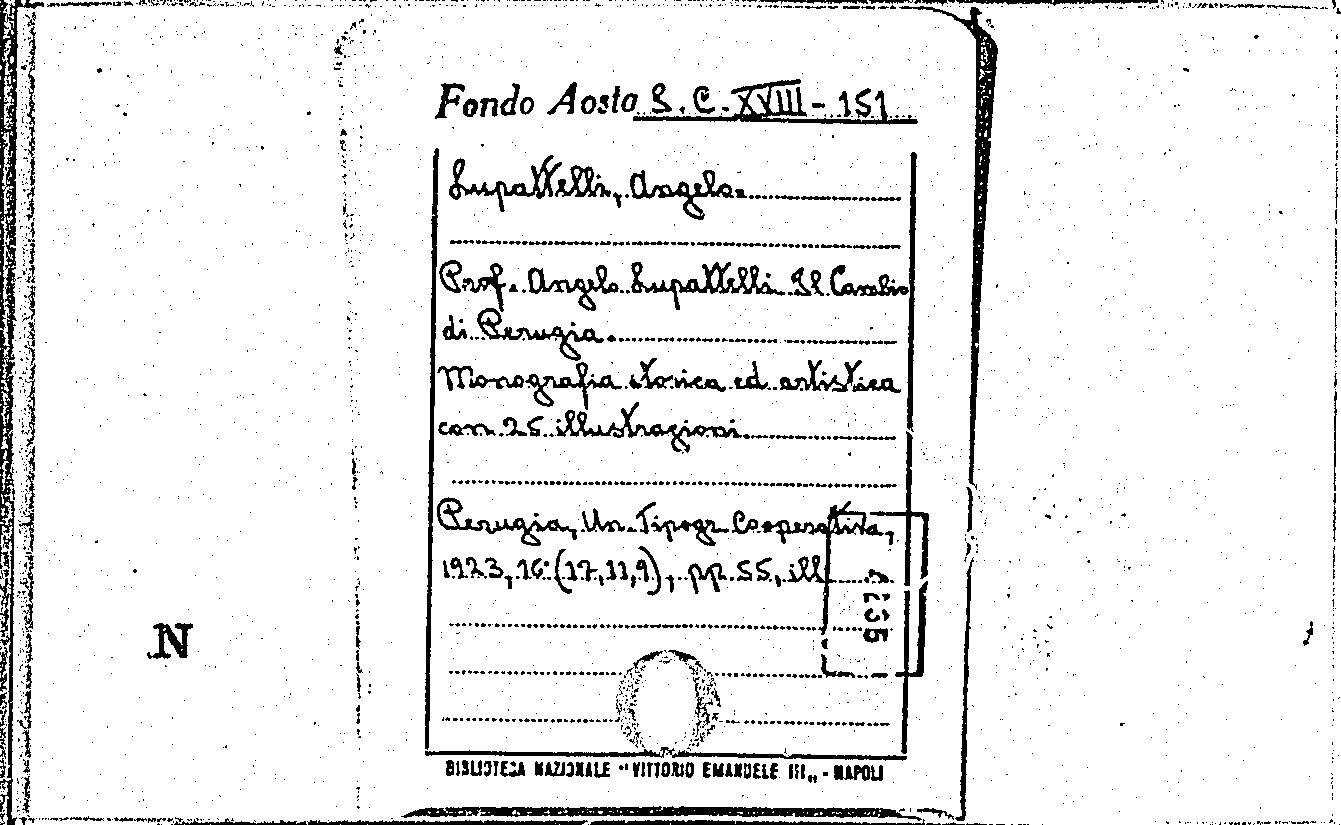 Fondo Aosta S. C. XVIII - 151
Lupattelli, Angelo.
Prof. Angelo Lupattelli. Il Cambio
di Perugia.
Monografia storica ed artistica
con 25 illustrazioni.
Perugia, Un. Tipogr. Cooperativa,
1923, 16° (17,11,9), pp. 55, ill.
N
BIBLIOTECA NAZIONALE "VITTORIO EMANUELE III„ - NAPOLI